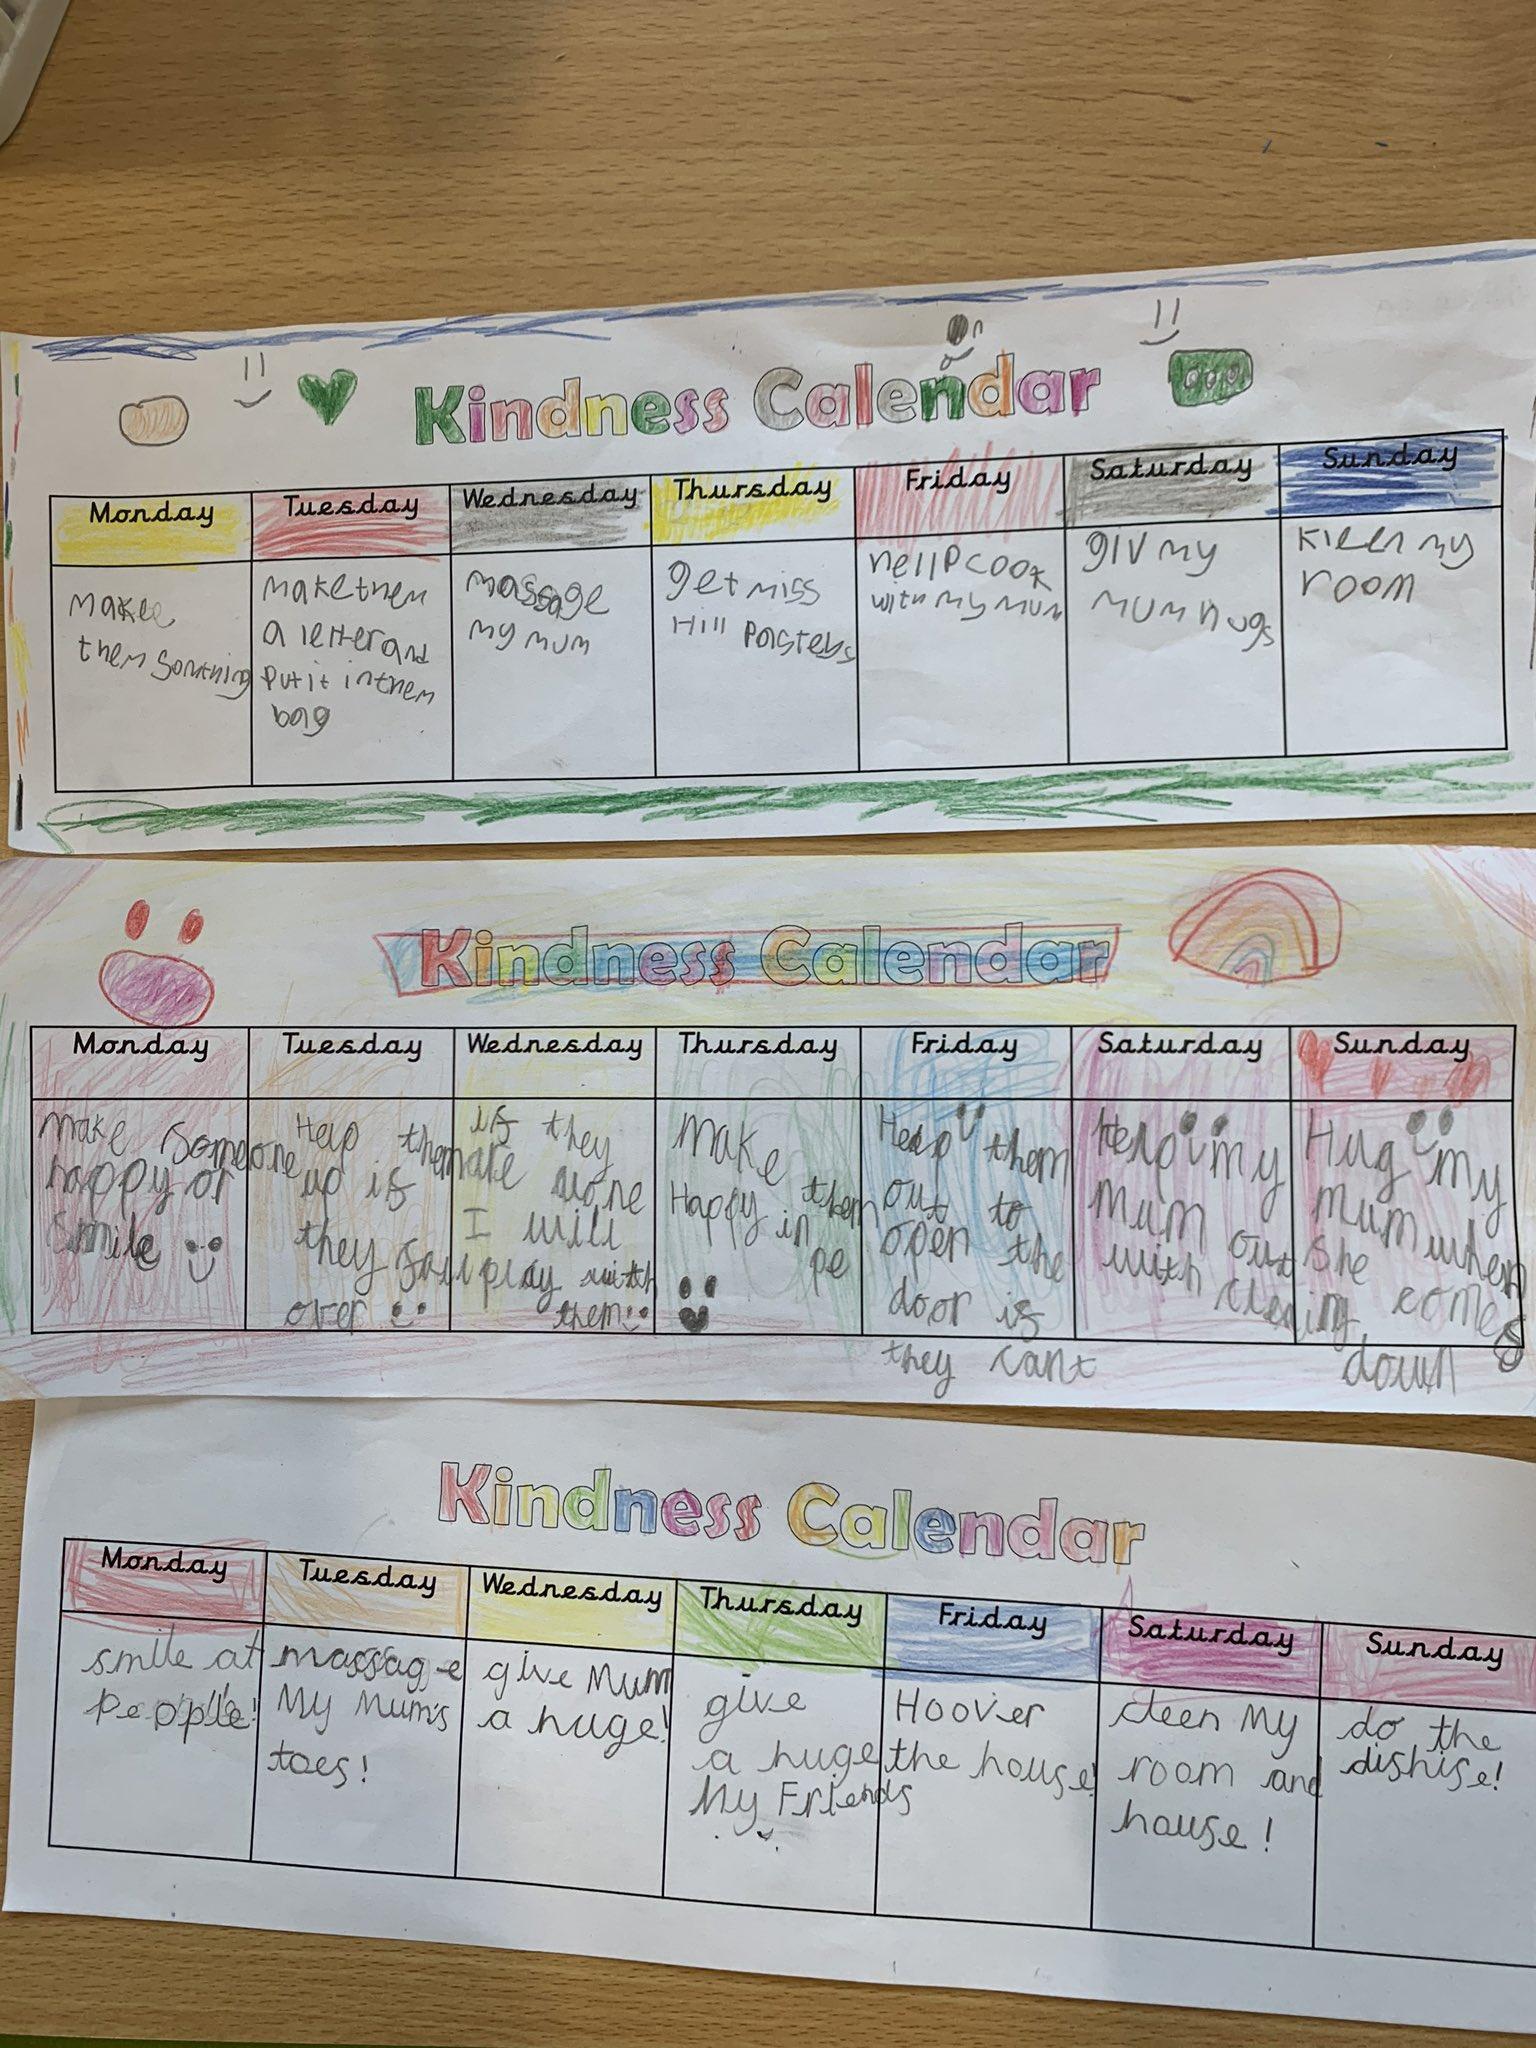 Kindness Calendar
Monday
Tuesday
Wednesday
Thursday
Friday
Saturday
Sunday
make
them somthing
make them
a letter and
put it in them
bag
massage
my mum
get miss
Hill
hellp cook
with my mum
giv my
mum hugs
kleen my
room
Kindness Calendar
Monday
Tuesday
Wednesday
Thursday
Friday
Saturday
Sunday
make someone
happy or
smile
Help them
up is
they fall
over
is they
are alone
I will
play with
them
make
Happy them
in pe
Help them
out to
open the
door is
they cant
Help my
mum out
with clening
Hug my
mum when
she comes
down
Kindness Calendar
Monday
Tuesday
Wednesday
Thursday
Friday
Saturday
Sunday
smile at
people!
massage
My Mum's
toes!
give Mum
a huge!
give
a huge
My Friends
Hoover
the house!
cleen My
room and
house!
do the
dishise!